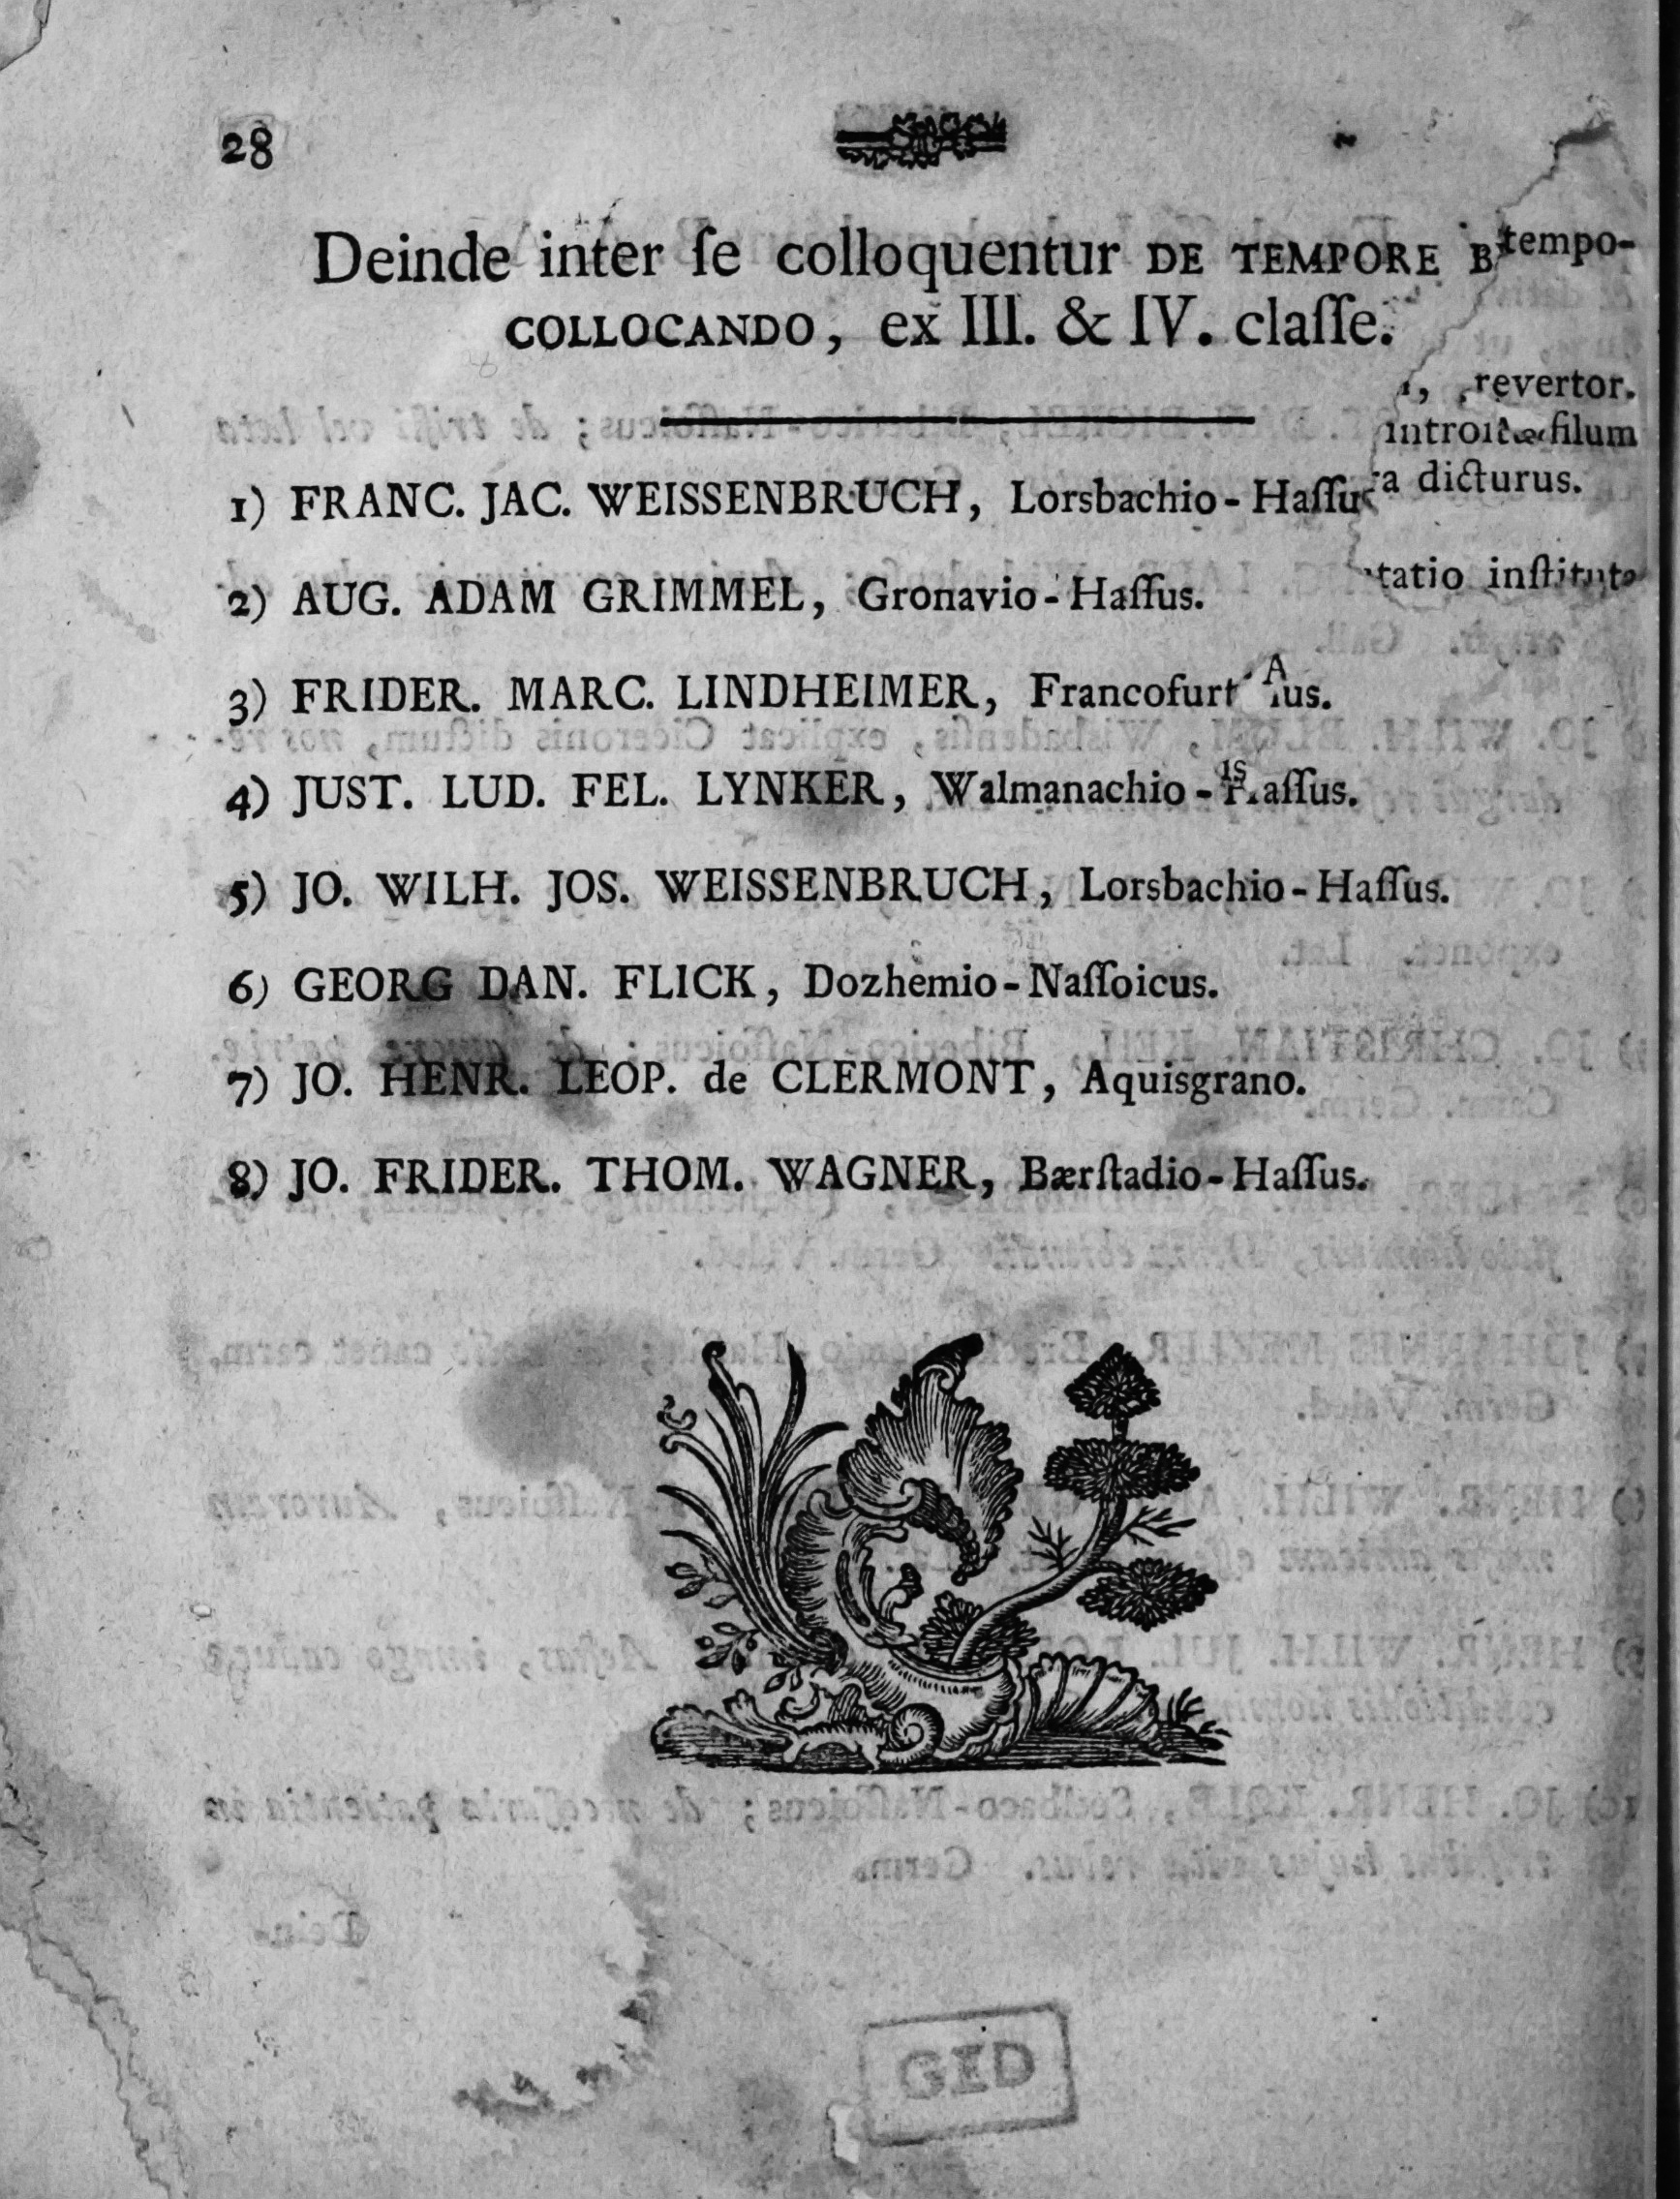 28
Deinde inter ſe colloquentur DE TEMPORE B
tempo-
COLLOCANDO, ex III. & IV. claſſe.
revertor.
filum
1) FRANC. JAC. WEISSENBRUCH, Lorsbachio-Haſſu
dicturus.
2) AUG. ADAM GRIMMEL, Gronavio-Haſſus.
tatio inſtitut
3) FRIDER. MARC. LINDHEIMER, Francofurt us.
4) JUST. LUD. FEL. LYNKER, Walmanachio-Haſſus.
5) JO. WILH. JOS. WEISSENBRUCH, Lorsbachio-Haſſus.
6) GEORG DAN. FLICK, Dozhemio-Naſſoicus.
7) JO. HENR. LEOP. de CLERMONT, Aquisgrano.
8) JO. FRIDER. THOM. WAGNER, Bærſtadio-Haſſus.
GED